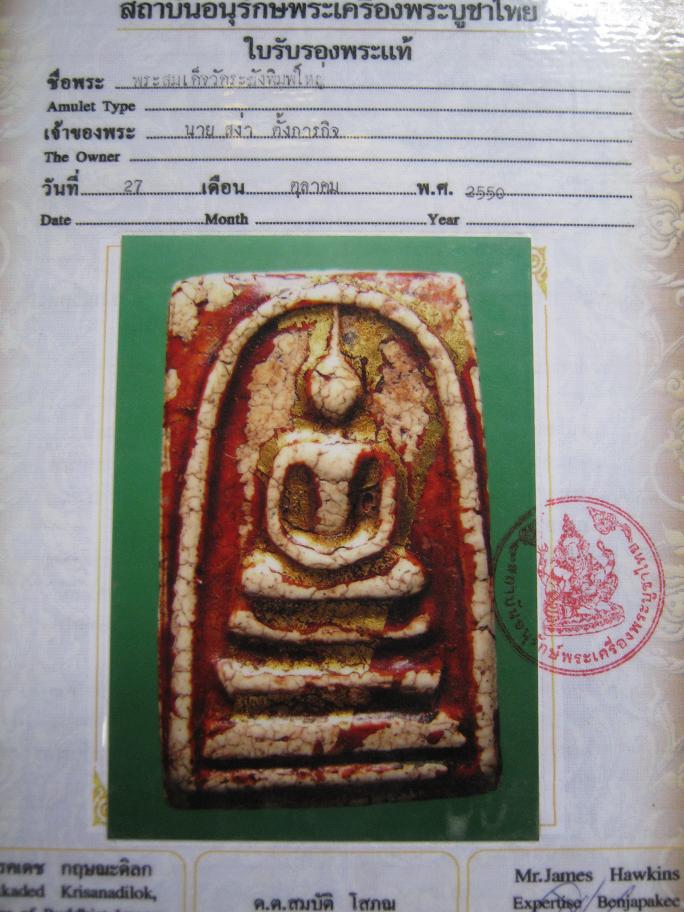 สถาบันอนุรักษ์พระเครื่องพระบูชาไทย
ใบรับรองพระแท้
ชื่อพระ พระสมเด็จวัดระฆังพิมพ์ใหญ่
Amulet Type
เจ้าของพระ นาย สง่า ตั้งภารกิจ
The Owner
วันที่ 27 เดือน ตุลาคม พ.ศ. 2550
Date Month Year
สถาบันอนุรักษ์พระเครื่องพระบูชาไทย
กฤษณะดิลก
Krisanadilok,
ด.ต.สมบัติ โสภณ
Mr.James Hawkins
Expertise Benjapakee